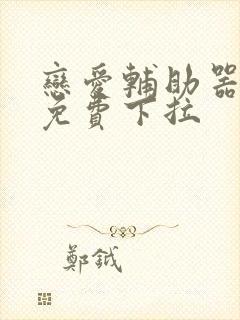 戀愛輔助器
免費下拉
鄭鉞